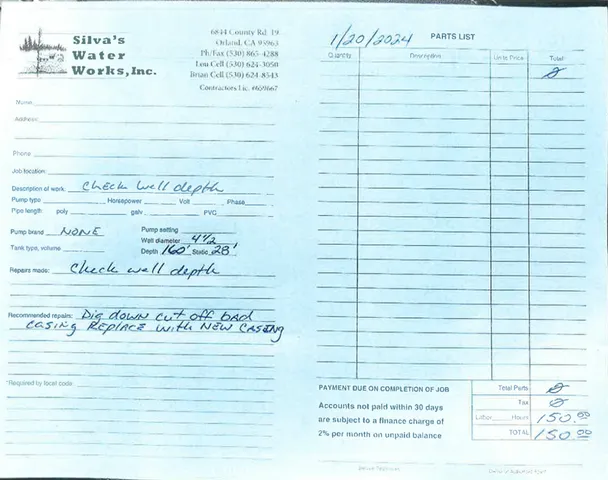 Silva's
Water
Works, Inc.
6844 County Rd. 19
Orland, CA 95963
Ph/Fax (530) 865-4288
Lou Cell (530) 624-3050
Brian Cell (530) 624-8543
Contractors Lic. #659667
Name
Address
Phone
Job location:
Description of work: Check well depth
Pump type Horsepower Volt Phase
Pipe length: poly galv PVC
Pump brand NONE Pump setting
Well diameter 4 1/2
Tank type, volume Depth 160' Static 28'
Repairs made: Check well depth
Recommended repair: Dig down cut off bad
casing Replace with New Casing
*Required by local code
1/20/2024 PARTS LIST
Quantity Description Unit Price Total
Ø
PAYMENT DUE ON COMPLETION OF JOB
Accounts not paid within 30 days
are subject to a finance charge of
2% per month on unpaid balance
Total Parts Ø
Tax Ø
Labor Hours 150.00
TOTAL 150.00